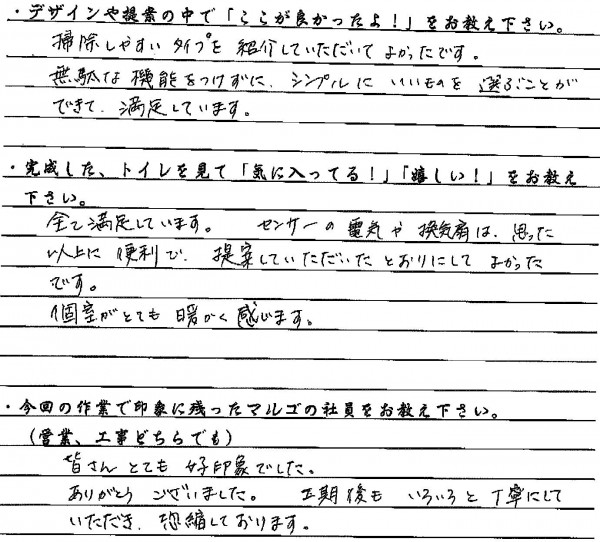 ・デザインや提案の中で「ここが良かったよ！」をお教え下さい。
掃除しやすいタイプを紹介していただいてよかったです。
無駄な機能をつけずに、シンプルにいいものを選ぶことが
できて、満足しています。
・完成した、トイレを見て「気に入ってる！」「嬉しい！」をお教え
下さい。
全て満足しています。 センサーの電気や換気扇は、思った
以上に便利で、提案していただいたとおりにしてよかった
です。
個室がとても暖かく感じます。
・今回の作業で印象に残ったマルゴの社員をお教え下さい。
(営業、工事どちらでも)
皆さんとても好印象でした。
ありがとうございました。 工期後もいろいろと丁寧にして
いただき、恐縮しております。